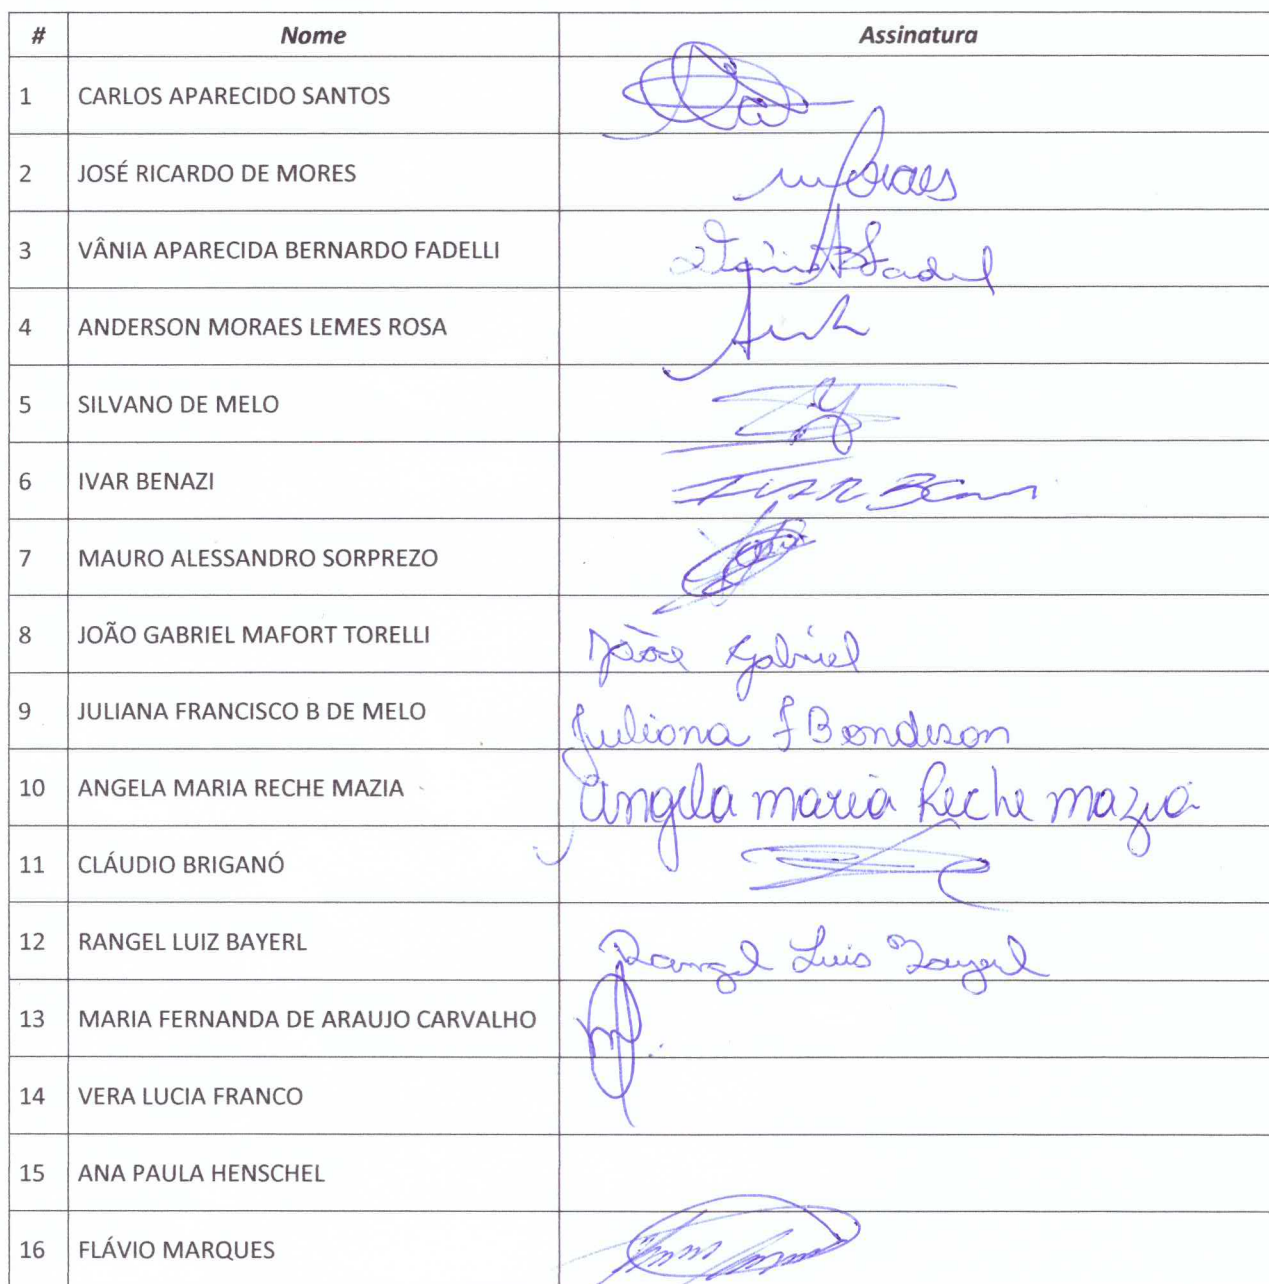 # Nome Assinatura
1 CARLOS APARECIDO SANTOS
2 JOSÉ RICARDO DE MORES
3 VÂNIA APARECIDA BERNARDO FADELLI
4 ANDERSON MORAES LEMES ROSA
5 SILVANO DE MELO
6 IVAR BENAZI
7 MAURO ALESSANDRO SORPREZO
8 JOÃO GABRIEL MAFORT TORELLI João Gabriel
9 JULIANA FRANCISCO B DE MELO Juliana F Bondeson
10 ANGELA MARIA RECHE MAZIA Angela maria Reche mazia
11 CLÁUDIO BRIGANÓ
12 RANGEL LUIZ BAYERL Rangel Luis Bayerl
13 MARIA FERNANDA DE ARAUJO CARVALHO
14 VERA LUCIA FRANCO
15 ANA PAULA HENSCHEL
16 FLÁVIO MARQUES